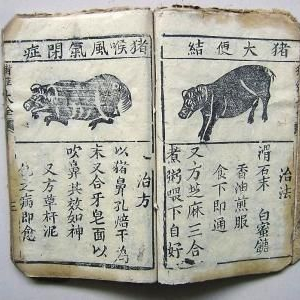 猪大便結
治法
滑石末 白蜜
香油煎服
食下即通
又方芝麻三合
煮粥喂下自好
猪喉風氣閉症
一治方
以猪鼻孔焙干為
末又合牙皂面以
吹鼻共效如神
又方草杆泥
之病即愈
大全